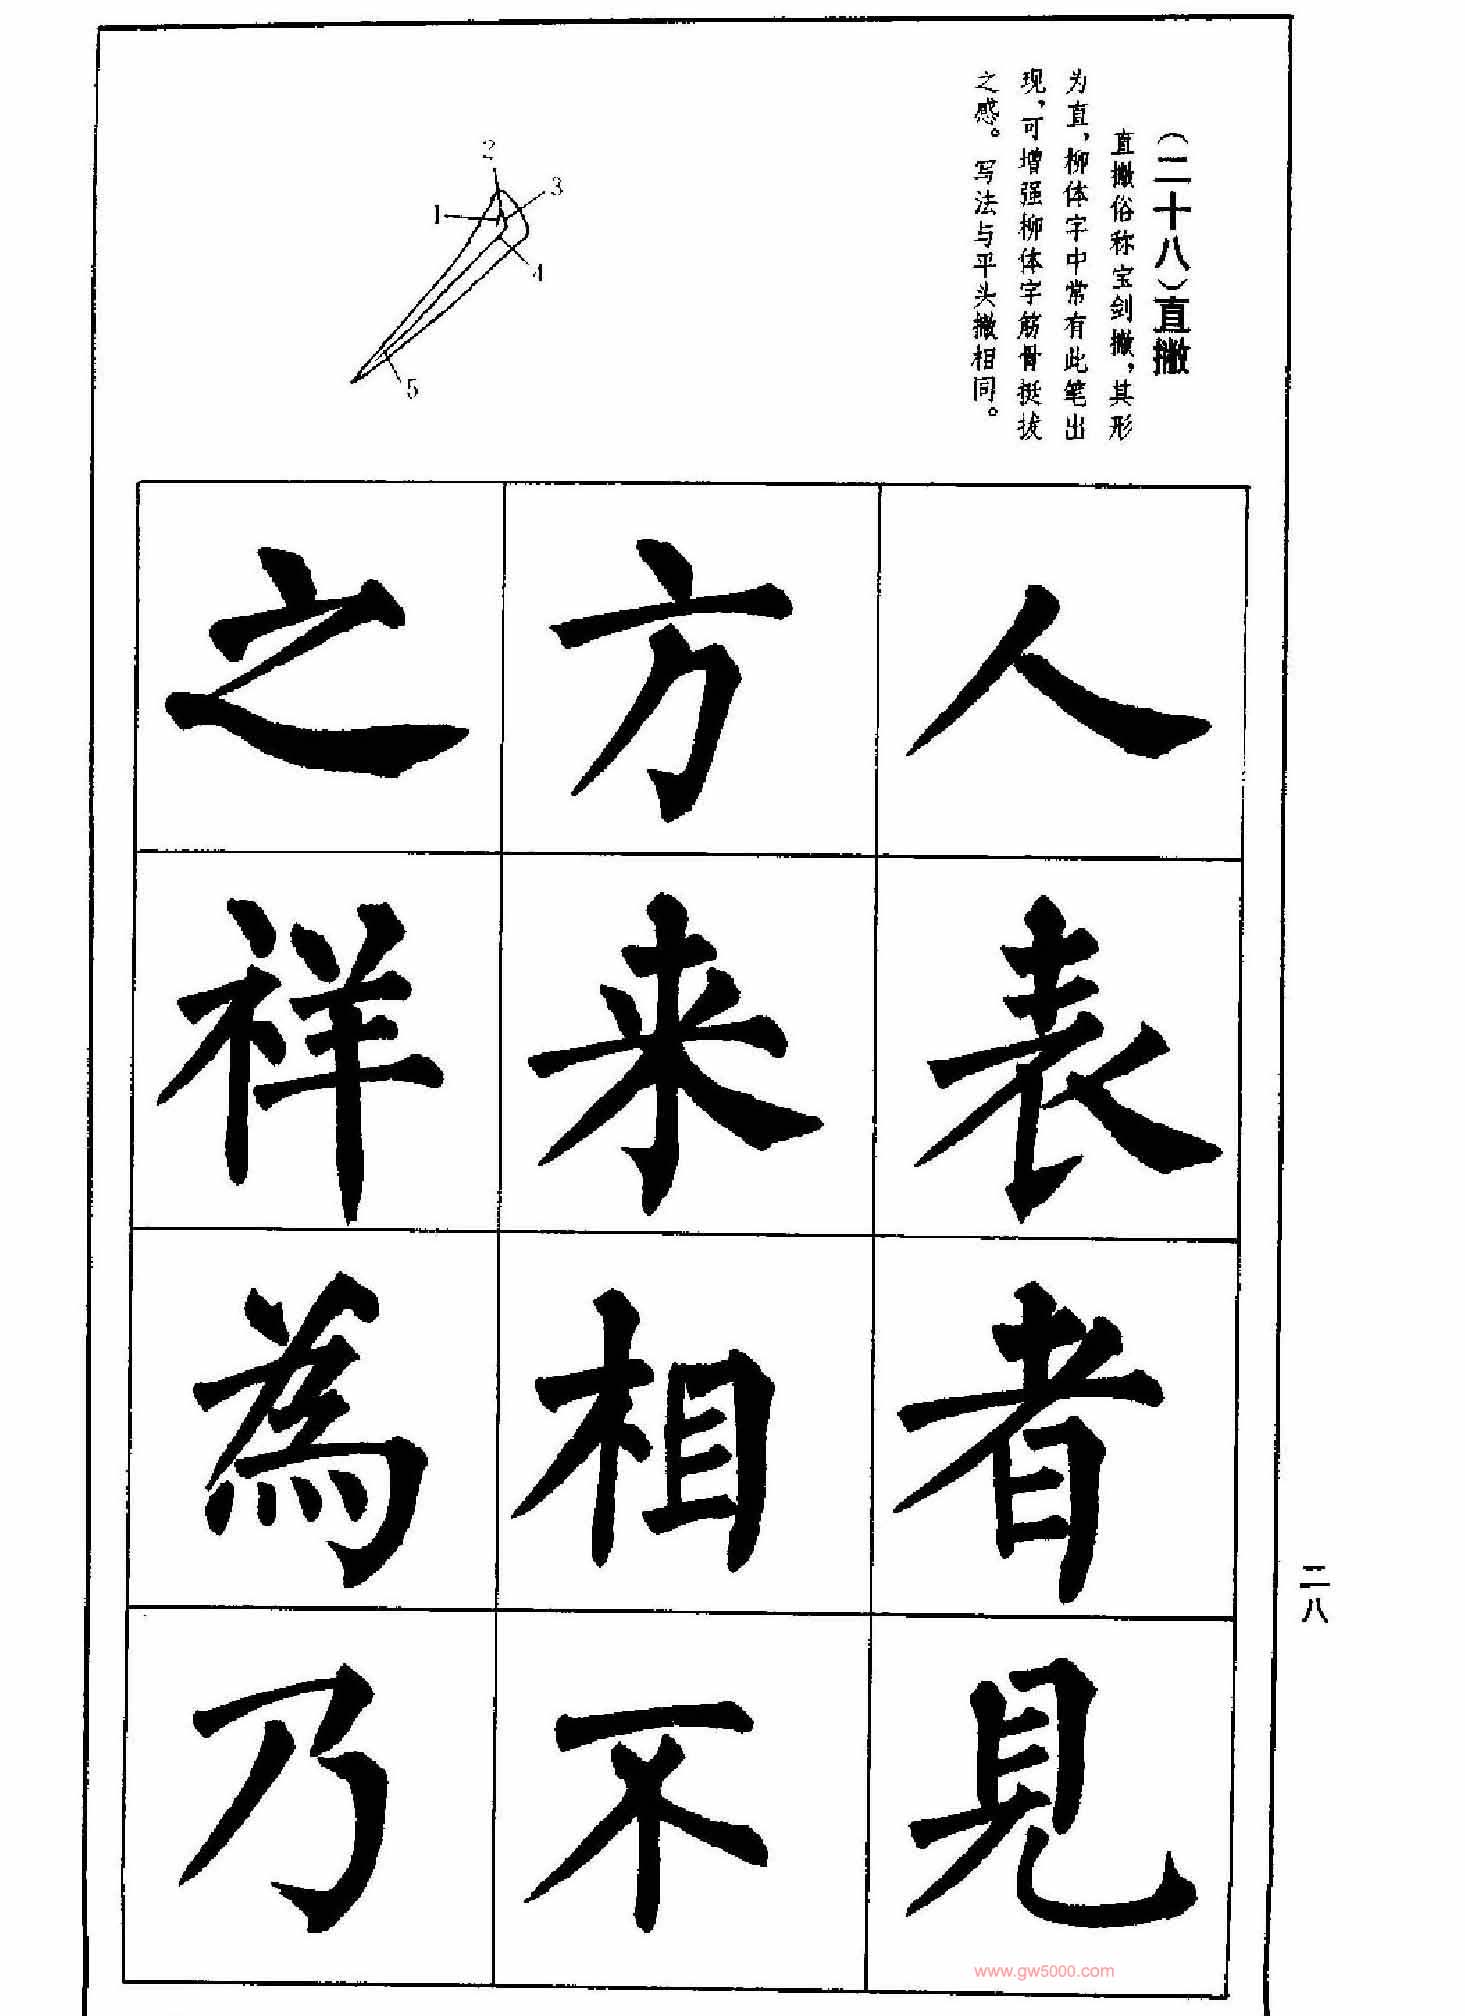 （二十八）直撇
直撇俗称宝剑撇，其形
为直，柳体字中常有此笔出
现，可增强柳体字筋骨挺拔
之感。写法与平头撇相同。
2
3
1
4
5
人表者見
方来相不
之祥為乃
二八
www.gw5000.com